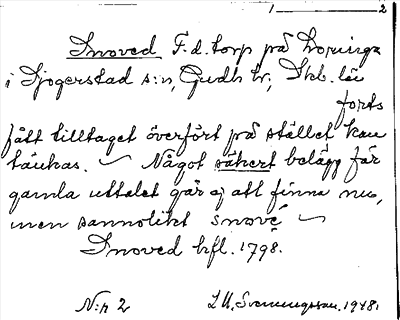 1 ——— 2
Snoved F.d. torp på Lovunga
i Sjogerstad s:n, Gudh. hr, Skb. län
forts
fått tilltaget överfört på stället kan
tänkas. ~ Något säkert belägg för
gamla uttalet går ej att finna nu,
men sannolikt snové ~
Snoved hfl. 1798.
N:r 2 L. U. Svenungsson. 1948.